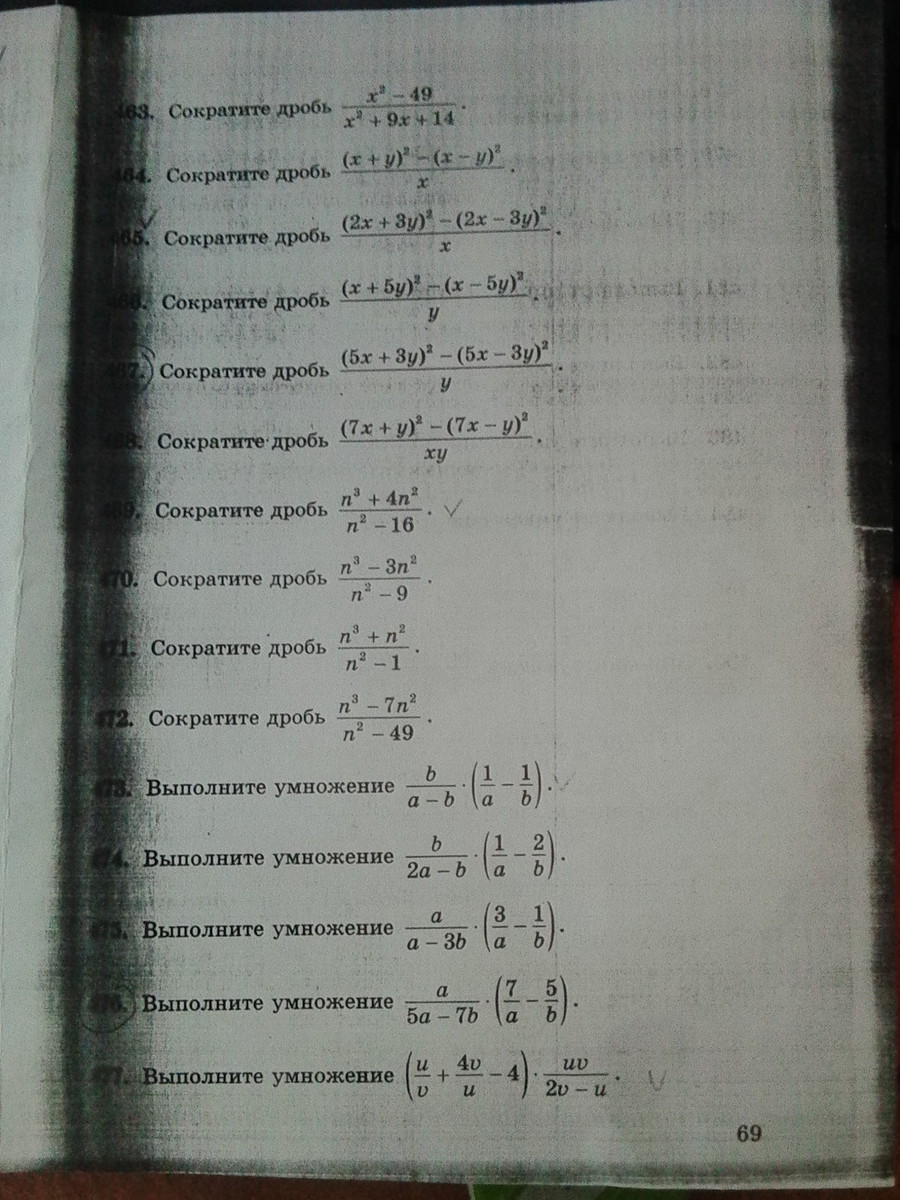 463. Сократите дробь (x² − 49)/(x² + 9x + 14).
464. Сократите дробь ((x + y)² − (x − y)²)/x.
465. Сократите дробь ((2x + 3y)² − (2x − 3y)²)/x.
466. Сократите дробь ((x + 5y)² − (x − 5y)²)/y.
467. Сократите дробь ((5x + 3y)² − (5x − 3y)²)/y.
468. Сократите дробь ((7x + y)² − (7x − y)²)/(xy).
469. Сократите дробь (n³ + 4n²)/(n² − 16).
470. Сократите дробь (n³ − 3n²)/(n² − 9).
471. Сократите дробь (n³ + n²)/(n² − 1).
472. Сократите дробь (n³ − 7n²)/(n² − 49).
473. Выполните умножение b/(a − b) · (1/a − 1/b).
474. Выполните умножение b/(2a − b) · (1/a − 2/b).
475. Выполните умножение a/(a − 3b) · (3/a − 1/b).
476. Выполните умножение a/(5a − 7b) · (7/a − 5/b).
477. Выполните умножение (u/v + 4v/u − 4) · uv/(2v − u).
69